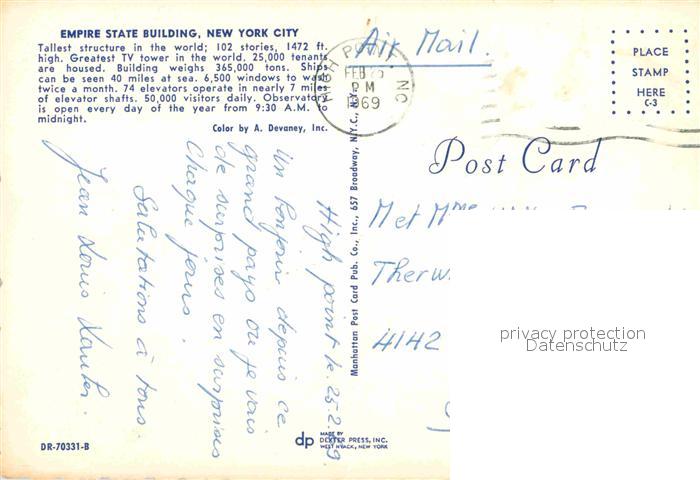 EMPIRE STATE BUILDING, NEW YORK CITY
Tallest structure in the world; 102 stories, 1472 ft.
high. Greatest TV tower in the world. 25,000 tenants
are housed. Building weighs 365,000 tons. Ships
can be seen 40 miles at sea. 6,500 windows to wash
twice a month. 74 elevators operate in nearly 7 miles
of elevator shafts. 50,000 visitors daily. Observatory
is open every day of the year from 9:30 A.M. to
midnight.
Color by A. Devaney, Inc.
Air Mail.
HIGH POINT NC
FEB 25
PM
1969
PLACE
STAMP
HERE
C-3
Post Card
High point le 25.2.69.
Un bonjour depuis ce
grand pays ou je vais
de surprises en surprises
Chaque jours.
Salutations à tous.
Jean Louis
Manhattan Post Card Pub. Co., Inc., 657 Broadway, N.Y.C., N.Y.
M et Mme
Therw
4142
privacy protection
Datenschutz
DR-70331-B
dp MADE BY
DEXTER PRESS, INC.
WEST NYACK, NEW YORK